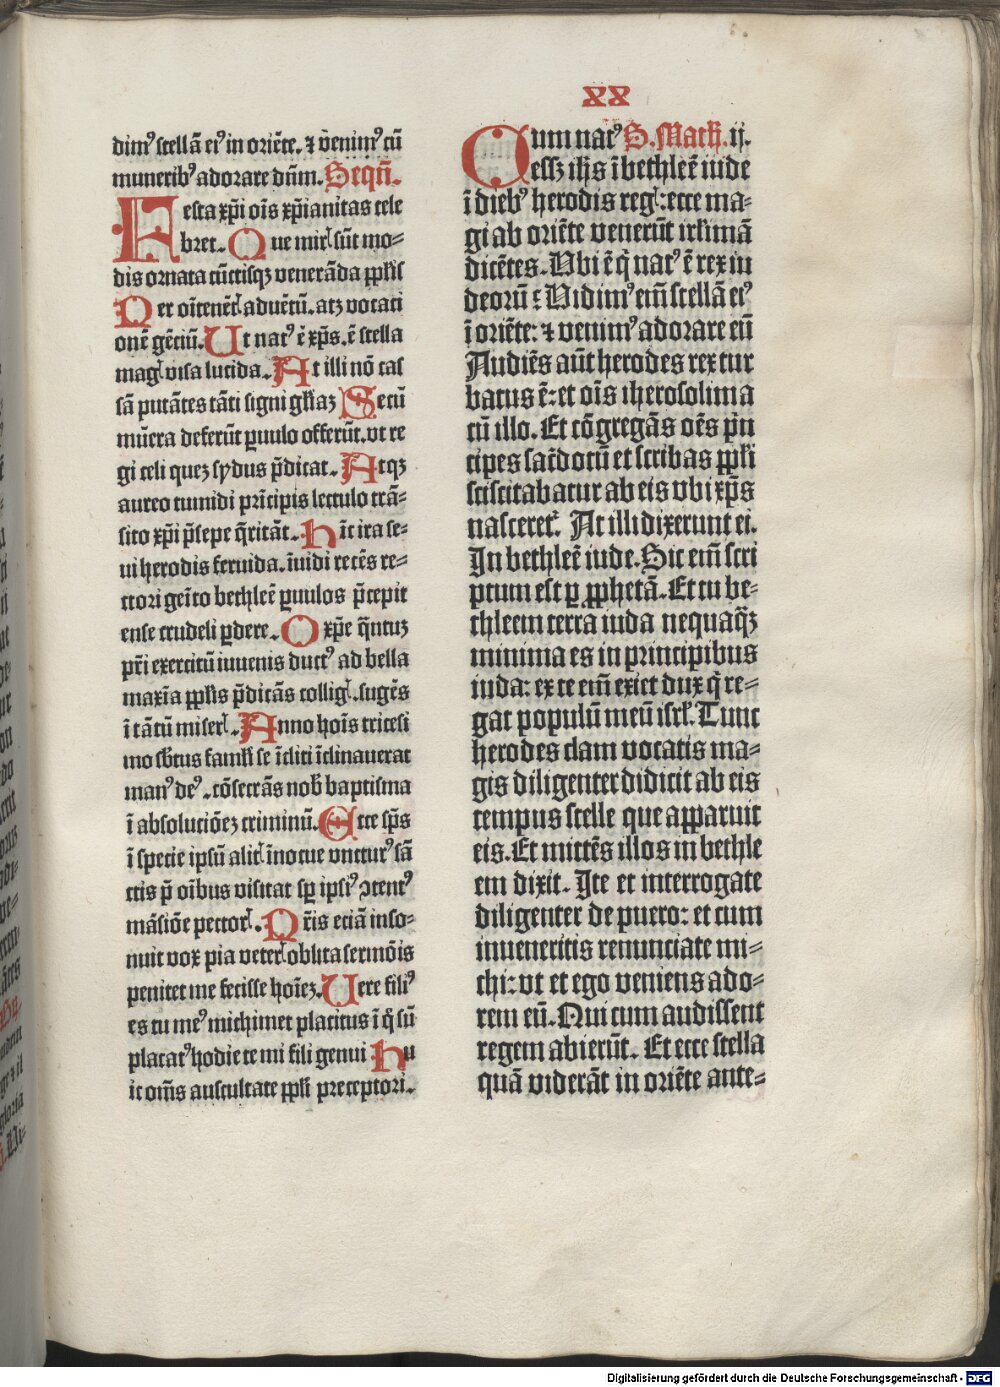 XX
dimꝰ stellã eiꝰ in oriẽte. ⁊ venimꝰ cũ
muneribꝰ adorare dñm. Seqñ.
Festa xp̃i oĩs xp̃ianitas cele
bret. Que mirꝭ sũt mo-
dis ornata cũctisqꝫ venerãda ppl̃is
Per oĩtenẽtꝭ aduẽtũ. atꝫ vocati
onẽ gẽciũ. Ut natꝰ ẽ xp̃s. ẽ stella
magꝭ visa lucida. At illi nõ cas
sã putãtes tãti signi gl̃iaꝫ Secũ
mũera deferũt puulo offerũt. vt re
gi celi queꝫ sydus p̃dicat. Atqꝫ
aureo tumidi prĩcipis lectulo trã-
sito xp̃i p̃sepe q̃ritãt. Hĩc ira se-
ui herodis feruida. ĩuidi recẽs re-
ctori geĩto bethleẽ puulos p̃cepit
ense crudeli ꝑdere. O xp̃e q̃ntuꝫ
pr̃i exercitũ iuuenis ductꝰ ad bella
maxĩa ppl̃is p̃dicãs colligꝭ. sugẽs
ĩ tãtũ miserꝭ. Anno hoĩs tricesi
mo sb̃tus famĩl se ĩcliti ĩclinauerat
manꝰ deꝰ. cõsecrãs nob̃ baptisma
ĩ absolutiõeꝫ criminũ. Ecce sp̃s
ĩ specie ipsũ alitꝭ ĩnocue vncturꝰ sã
ctis p̃ oĩbus visitat sp̱ ipsiꝰ ↄtentꝰ
mãsiõe pectorꝭ. Pr̃is eciã inso-
nuit vox pia veterꝭ oblita sermõis
penitet me fecisse hoĩeꝫ. Uere filiꝰ
es tu meꝰ michimet placitus ĩ q̃ sũ
placatꝰ hodie te mi fili genui Hu
ic om̃s auscultate ppl̃i preceptori.
Cum natꝰ S. Math. ij.
essꝫ ih̃s ĩ bethleẽ iude
ĩ diebꝰ herodis regꝭ: ecce ma-
gi ab oriẽte venerũt irl̃imã
dicẽtes. Vbi ẽ q̃ natꝰ ẽ rex iu
deorũ: Vidimꝰ eiñ stellã eiꝰ
ĩ oriẽte: ⁊ venimꝰ adorare eũ
Audiẽs aũt herodes rex tur
batus ẽ: et oĩs iherosolima
cũ illo. Et cõgregãs oẽs pñ
cipes sac̃dotũ et scribas ppl̃i
sciscitabatur ab eis vbi xp̃s
nasceretꝰ. At illi dixerunt ei.
In bethleẽ iude. Sic eiñ scri
ptum est ꝑ ꝓphetã. Et tu be-
thleem terra iuda nequaq̃ꝫ
minima es in principibus
iuda: ex te eiñ exiet dux q̃ re-
gat populũ meũ isrl̃. Tunc
herodes clam vocatis ma-
gis diligenter didicit ab eis
tempus stelle que apparuit
eis. Et mittẽs illos in bethle
em dixit. Ite et interrogate
diligenter de puero: et cum
inueneritis renunciate mi-
chi: vt et ego veniens ado-
rem eũ. Qui cum audissent
regem abierũt. Et ecce stella
quã viderãt in oriẽte ante-
Digitalisierung gefördert durch die Deutsche Forschungsgemeinschaft - DFG